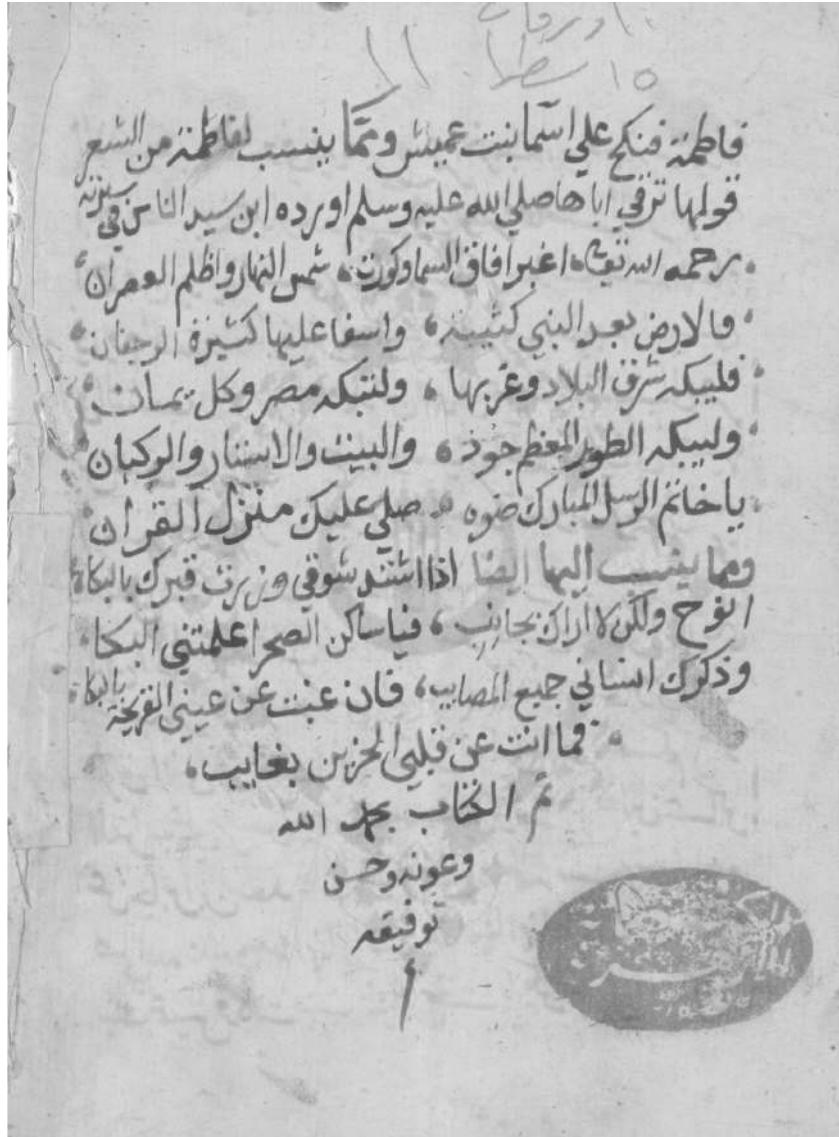 ١٠ ورقات
١٥ سطرا
١١
فاطمة فنكح علي اسما بنت عميس ومما ينسب لفاطمة من الشعر
قولها ترثي اباها صلي الله عليه وسلم اورده ابن سيد الناس في سيرته
رحمه الله تعالى اغبر افاق السما وكورت، شمس النهار واظلم العصران
فالارض بعد النبي كئيبة، واسفا عليها كثيرة الرجفان
فليبكه شرق البلاد وغربها، ولتبكه مصر وكل يمان
وليبكه الطور المعظم جوده، والبيت والاستار والركبان
يا خاتم الرسل المبارك ضوه، صلي عليك منزل القران
ومما ينسب إليها ايضا اذا اشتد شوقي وزرت قبرك بالبكاء
انوح ولكن لا اراك بجانب، فيا ساكن الصحرا علمتني البكا
وذكرك انساني جميع المصايب، فان غبت عن عيني القريحة بالبكا
فما انت عن قلبي الحزين بغايب،
تم الكتاب بحمد الله
وعونه وحسن
توفيقه
م